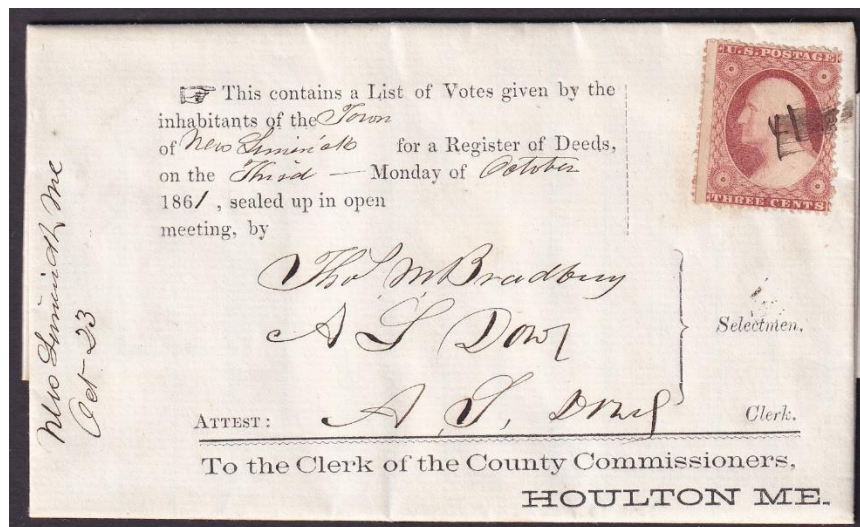 U.S. POSTAGE
☞ This contains a List of Votes given by the
inhabitants of the Town
of New Limerick for a Register of Deeds,
on the Third — Monday of October
1861, sealed up in open
meeting, by
Thos M Bradbury
A S Dow
Selectmen.
ATTEST: A. S. Dow Clerk.
To the Clerk of the County Commissioners,
HOULTON ME.
THREE CENTS
New Limerick Me
Oct 23